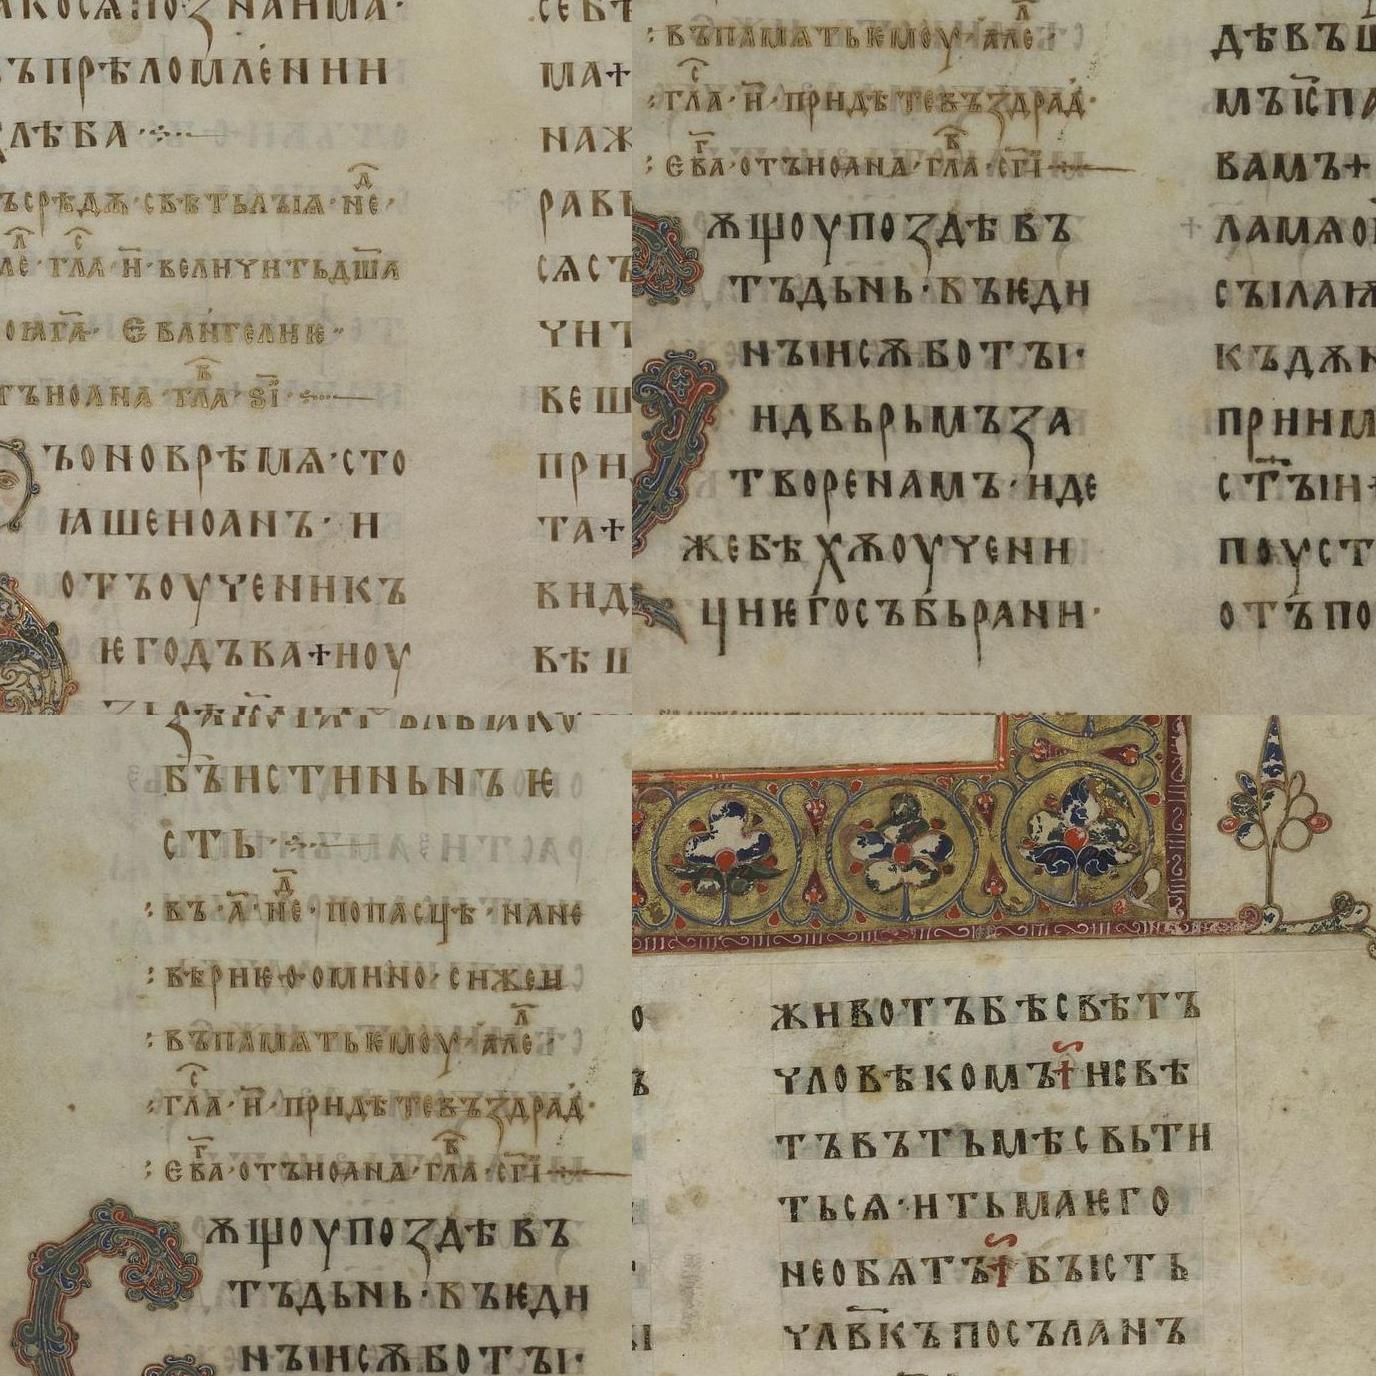 ЪПРѢЛОМЛЕНИИ
ЛѢБА
ЪСРѢДѪ·СВѢТЬЛЪІѦ·НЕ·
ЛЕ·ГЛА·Н·ВЕЛИЧИТЬДША
ОꙖГА· ЕВАНГЕЛИѤ
ТЪИОАНА ГЛА·ЅІ
ЪОНОВРѢМѦ·СТО
ꙖШЕИОАНЪ· И
ОТЪОУЧЕНИКЪ
ѤГОДЪВА+ИОУ
СЕБѢ
МА+
НАЖ
РАВЬ
СѦСЪ
ЧИТ
ВЕШ
ПРИ
ТА+
ВИД
ВѢШ
:ВЪПАМѦТЬѤМОУ·АЛЕ·
:ГЛА·Н·ПРИДѢТЕВЪЗДРАД·
:ЕВА·ОТЪИОАНА·ГЛА·СГІ
ѪЩОУПОЗДѢВЪ
ТЪДЬНЬ·ВЪѤДИ
НЪІИСѪБОТЪІ·
ИДВЬРЬМЪЗА
ТВОРЕНАМЪ·ИДЕ
ЖЕБѢХѪОУЧЕНИ
ЦИѤГОСЪБЬРАНИ·
ДѢВЪШ
МЪІСПА
ВАМЪ+
ЛАМѦО
СЪІЛАѤ
КЪДѪН
ПРИИМ
СТЪІИ+
ПОУСТ
ОТЪПО
БЪИСТИНЬНЪ Ѥ
СТЬ·
:ВЪ·А·НЕ·ПОПАСЦѢ·НАНЕ
:ВѢРИѤ·ѲОМИНО·СИЖЕН
:ВЪПАМѦТЬѤМОУ·АЛЕ·
:ГЛА·Н·ПРИДѢТЕВЪЗДРАД·
:ЕВА·ОТЪИОАНА·ГЛА·СГІ
ѪЩОУПОЗДѢВЪ
ТЪДЬНЬ·ВЪѤДИ
НЪІИСѪБОТЪІ·
ЖИВОТЪБѢСВѢТЪ
ЧЛОВѢКОМЪ+ИСВѢ
ТЪВЪТЬМѢСВЬТИ
ТЬСѦ·ИТЬМАѤГО
НЕОБѦТЪ+БЪІСТЬ
ЧЛВКЪПОСЪЛАНЪ